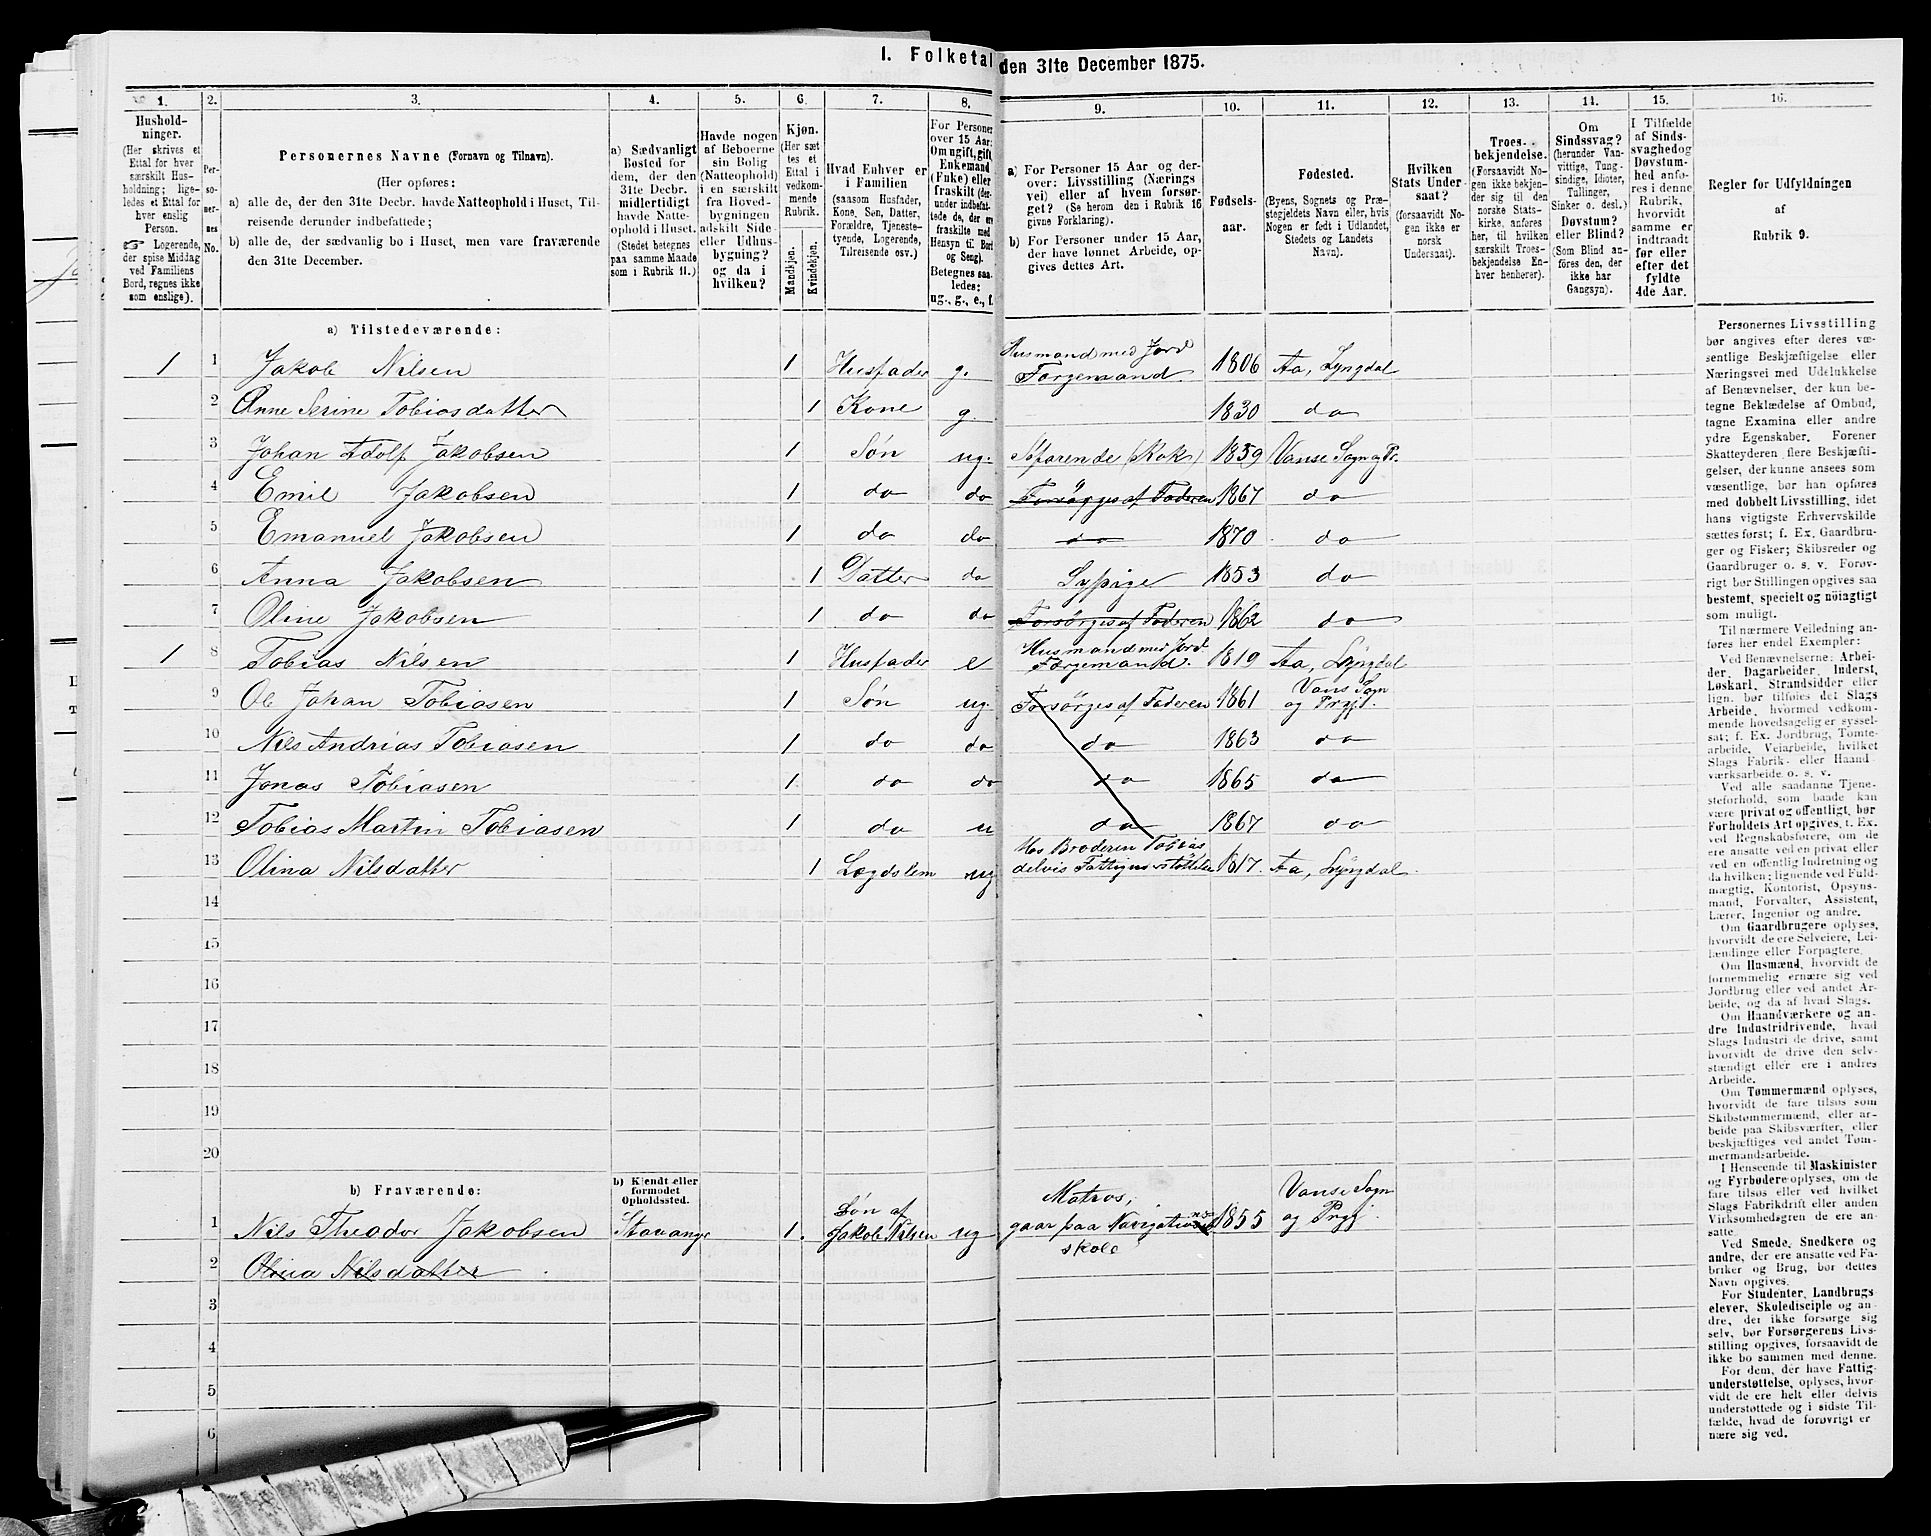 I. Folketal den 31te December 1875.
1. 2. 3. 4. 5. 6. 7. 8. 9. 10. 11. 12. 13. 14. 15. 16.
Hushold-
ninger.
(Her skrives et
Ettal for hver
særskilt Hus-
holdning; lige-
ledes et Ettal for
hver enslig
Person.
☞ Logerende,
der spise Middag
ved Familiens
Bord, regnes ikke
som enslige).
Per-
so-
ner-
nes
No.
Personernes Navne (Fornavn og Tilnavn).
(Her opføres:
a) alle de, der den 31te Decbr. havde Natteophold i Huset, Til-
reisende derunder indbefattede;
b) alle de, der sædvanlig bo i Huset, men vare fraværende
den 31te December.
a) Sædvanligt
Bosted for
dem, der den
31te Decbr.
midlertidigt
havde Natte-
ophold i Huset.
(Stedet betegnes
paa samme Maade
som i Rubrik 11.)
Havde nogen
af Beboerne
sin Bolig
(Natteophold)
i en særskilt
fra Hoved-
bygningen
adskilt Side-
eller Udhus-
bygning?
og da i
hvilken?
Kjøn.
(Her sæt-
tes et
Ettal i
vedkom-
mende
Rubrik.
Mandkjøn.
Kvindekjøn.
Hvad Enhver er
i Familien
(saasom Husfader,
Kone, Søn, Datter,
Forældre, Tjeneste-
tyende, Logerende,
Tilreisende osv.)
For Personer
over 15 Aar:
Om ugift, gift,
Enkemand
(Enke) eller
fraskilt (der-
under indbefat-
tede de, der ere
fraskilte med
Hensyn til Bord
og Seng).
Betegnes saa-
ledes:
ug., g., e., f.
a) For Personer 15 Aar og der-
over: Livsstilling (Nærings-
vei) eller af hvem forsør-
get? (Se herom den i Rubrik 16
givne Forklaring).
b) For Personer under 15 Aar,
der have lønnet Arbeide, op-
gives dettes Art.
Fødsels-
aar.
Fødested.
(Byens, Sognets og Præ-
stegjeldets Navn eller, hvis
Nogen er født i Udlandet,
Stedets og Landets
Navn).
Hvilken
Stats Under-
saat?
(forsaavidt No-
gen ikke er
norsk
Undersaat).
Troes-
bekjendelse.
(Forsaavidt No-
gen ikke bekjen-
der sig til den
norske Stats-
kirke, anføres
her, til hvilken
særskilt Troes-
bekjendelse En-
hver henhører).
Om
Sindssvag?
(herunder Van-
vittige, Tung-
sindige, Idioter,
Tullinger,
Sinker o. desl.)
Døvstum?
eller Blind?
(Som Blind an-
føres den, der
ikke har
Gangsyn).
I Tilfælde
af Sinds-
svaghed og
Døvstum-
hed anfø-
res i denne
Rubrik,
hvorvidt
samme er
indtraadt
før eller
efter det
fyldte
4de Aar.
Regler for Udfyldningen
af
Rubrik 9.
a) Tilstedeværende:
1 1 Jakob Nilsen 1 Husfader g. Husmand med Jord Færgemand 1806 Aa, Lyngdal
2 Anne Serine Tobiasdatter 1 Kone g. 1830 do
3 Johan Adolf Jakobsen 1 Søn ug. Søfarende (Kok) 1859 Vanse Sogn og Pr.
4 Emil Jakobsen 1 do do Forsørges af Faderen 1867 do
5 Emanuel Jakobsen 1 do do do 1870 do
6 Anna Jakobsen 1 Datter do Sypige 1853 do
7 Oline Jakobsen 1 do do Forsørges af Faderen 1862 do
1 8 Tobias Nilsen 1 Husfader e Husmand med Jord Færgemand. 1819 Aa, Lyngdal
9 Ole Johan Tobiasen 1 Søn ug. Forsørges af Faderen 1861 Vans Sogn og Prgj.
10 Nils Andrias Tobiasen 1 do do do 1863 do
11 Jonas Tobiasen 1 do do do 1865 do
12 Tobias Martin Tobiasen 1 do u do 1867 do
13 Olina Nilsdatter 1 Lægdslem ug Hos Broderen Tobias delvis Fattigunderstøttelse 1817. Aa, Lyngdal
14
15
16
17
18
19
20
b) Fraværende:
b) Kjendt eller
formodet
Opholdssted.
1 Nils Theodor Jakobsen Stavanger 1. Søn af Jakob Nilsen ug Matros, gaar paa Navigationsskole 1855 Vanse Sogn og Prgj.
2 Olina Nilsdatter
3
4
5
6
Personernes Livsstilling
bør angives efter deres væ-
sentlige Beskjæftigelse eller
Næringsvei med Udelukkelse
af Benævnelser, der kun be-
tegne Beklædelse af Ombud,
tagne Examina eller andre
ydre Egenskaber. Forener
Skatteyderen flere Beskjæfti-
gelser, der kunne ansees som
væsentlige, bør han opføres
med dobbelt Livsstilling, idet
hans vigtigste Erhvervskilde
sættes først; f. Ex. Gaardbru-
ger og Fisker; Skibsreder og
Gaardbruger o. s. v. Forøv-
rigt bør Stillingen opgives saa
bestemt, specielt og nöiagtigt
som muligt.
Til nærmere Veiledning an-
føres her endel Exempler:
Ved Benævnelserne: Arbei-
der, Dagarbeider, Inderst,
Løskarl, Strandsidder eller
lign. bør tilføies det Slags
Arbeide, hvormed vedkom-
mende hovedsagelig er syssel-
sat; f. Ex. Jordbrug, Tomte-
arbeide, Veiarbeide, hvilket
Slags Fabrik- eller Haand-
værksarbeide o. s. v.
Ved alle saadanne Tjene-
steforhold, som baade kan
være privat og offentligt, bør
Forholdets Art opgives, t. Ex.
ved Regnskabsførere, om de
ere ansatte ved en privat eller
ved en offentlig Indretning og
da hvilken; lignende ved Fuld-
mægtig, Kontorist, Opsyns-
mand, Forvalter, Assistent,
Lærer, Ingeniør og andre.
Om Gaardbrugere oplyses,
hvorvidt de ere Selveiere, Lei-
lændinge eller Forpagtere.
Om Husmænd, hvorvidt de
fornemmelig ernære sig ved
Jordbrug eller ved andet Ar-
beide, og da af hvad Slags.
Om Haandværkere og an-
dre Industridrivende, hvad
Slags Industri de drive, samt
hvorvidt de drive den selv-
stændigt eller ere i andres
Arbeide.
Om Tømmermænd oplyses,
hvorvidt de fare tilsøs som
Skibstømmermænd, eller ar-
beide paa Skibsværfter, eller
beskjæftiges ved andet Tøm-
mermandsarbeide.
I Henseende til Maskinister
og Fyrbødere oplyses, om de
fare tilsøs eller ved hvilket
Slags Fabrikdrift eller anden
Virksomhedgren de ere an-
satte.
Ved Smede, Snedkere og
andre, der ere ansatte ved Fa-
briker og Brug, bør dettes
Navn opgives.
For Studenter, Landbrugs-
elever, Skoledisciple og an-
dre, der ikke forsørge sig
selv, bør Forsørgerens Livs-
stilling opgives, forsaavidt de
ikke bo sammen med denne.
For dem, der have Fattig-
understøttelse, oplyses, hvor-
vidt de ere helt eller delvis
understøttede og i sidste Til-
fælde, hvad de forøvrigt er-
nære sig ved.